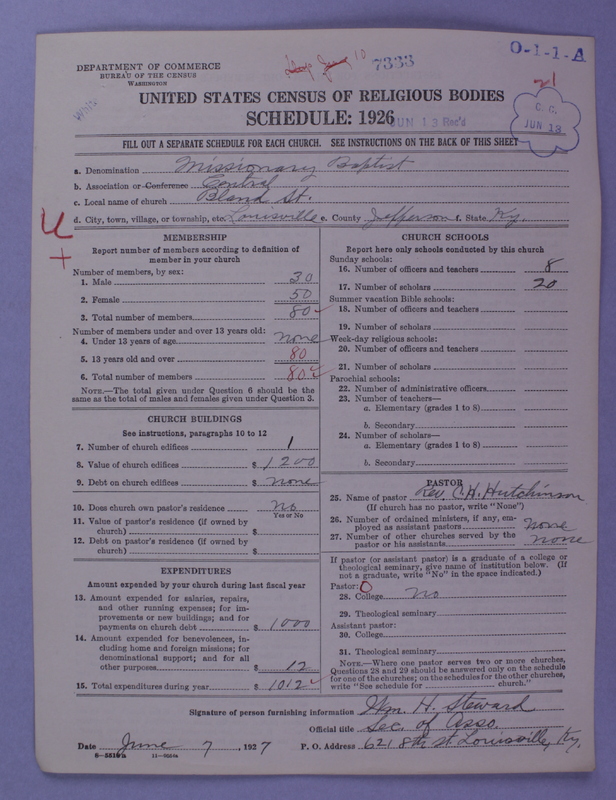 DEPARTMENT OF COMMERCE
BUREAU OF THE CENSUS
WASHINGTON
7333
O-1-1-A
White
UNITED STATES CENSUS OF RELIGIOUS BODIES
SCHEDULE: 1926
JUN 13 Rec'd
C. C.
JUN 13
FILL OUT A SEPARATE SCHEDULE FOR EACH CHURCH. SEE INSTRUCTIONS ON THE BACK OF THIS SHEET
a. Denomination Missionary Baptist
b. Association or Conference Central
c. Local name of church Bland St.
d. City, town, village, or township, etc. Louisville e. County Jefferson f. State Ky.
MEMBERSHIP
Report number of members according to definition of
member in your church
Number of members, by sex:
1. Male 30
2. Female 50
3. Total number of members 80
Number of members under and over 13 years old:
4. Under 13 years of age none
5. 13 years old and over 80
6. Total number of members 80
NOTE.—The total given under Question 6 should be the
same as the total of males and females given under Question 3.
CHURCH BUILDINGS
See instructions, paragraphs 10 to 12
7. Number of church edifices 1
8. Value of church edifices $ 1200
9. Debt on church edifices $ none
10. Does church own pastor's residence no
Yes or No
11. Value of pastor's residence (if owned by
church) $
12. Debt on pastor's residence (if owned by
church) $
EXPENDITURES
Amount expended by your church during last fiscal year
13. Amount expended for salaries, repairs,
and other running expenses; for im-
provements or new buildings; and for
payments on church debt $ 1000
14. Amount expended for benevolences, in-
cluding home and foreign missions; for
denominational support; and for all
other purposes $ 12
15. Total expenditures during year $ 1012
CHURCH SCHOOLS
Report here only schools conducted by this church
Sunday schools:
16. Number of officers and teachers 8
17. Number of scholars 20
Summer vacation Bible schools:
18. Number of officers and teachers
19. Number of scholars
Week-day religious schools:
20. Number of officers and teachers
21. Number of scholars
Parochial schools:
22. Number of administrative officers
23. Number of teachers—
a. Elementary (grades 1 to 8)
b. Secondary
24. Number of scholars—
a. Elementary (grades 1 to 8)
b. Secondary
PASTOR
25. Name of pastor Rev. C. H. Hutchinson
(If church has no pastor, write "None")
26. Number of ordained ministers, if any, em-
ployed as assistant pastors none
27. Number of other churches served by the
pastor or his assistants none
If pastor (or assistant pastor) is a graduate of a college or
theological seminary, give name of institution below. (If
not a graduate, write "No" in the space indicated.)
Pastor: 0
28. College no
29. Theological seminary
Assistant pastor:
30. College
31. Theological seminary
NOTE.—Where one pastor serves two or more churches,
Questions 28 and 29 should be answered only on the schedule
for one of the churches; on the schedules for the other churches,
write "See schedule for church."
Signature of person furnishing information Wm. H. Steward
Official title Sec. of Asso.
Date June 7, 1927 P. O. Address 621 8th St. Louisville, Ky.